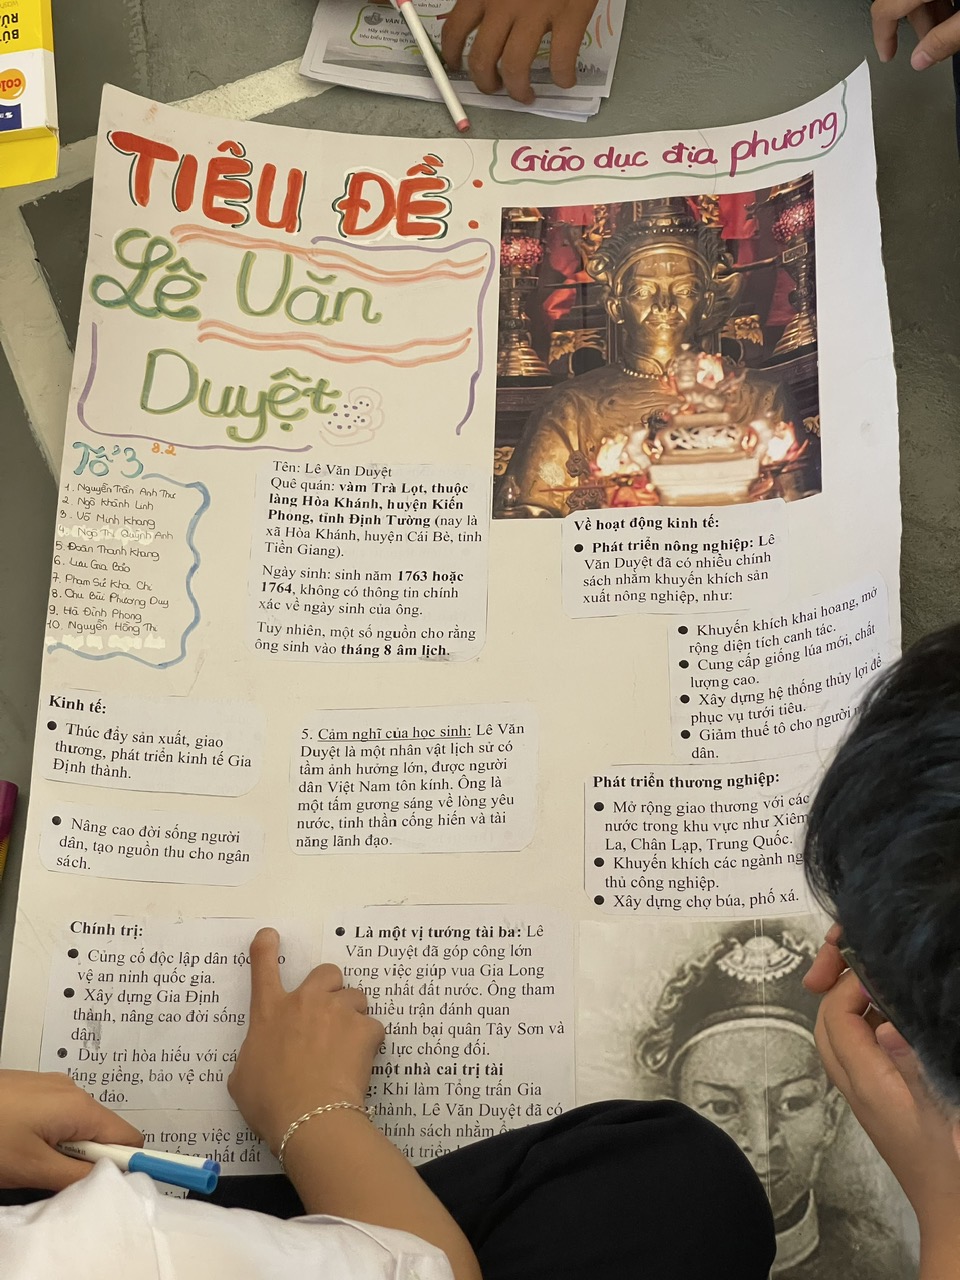 TIÊU ĐỀ:
Lê Văn
Duyệt
Giáo dục địa phương
Tổ 3 8.2
1. Nguyễn Trần Anh Thư
2. Ngô Khánh Linh
3. Võ Minh Khang
4. Ngô Thị Quỳnh Anh
5. Đoàn Thanh Khang
6. Lưu Gia Bảo
7. Phạm Sử Kha Chi
8. Chu Bùi Phương Duy
9. Hà Đình Phong
10. Nguyễn Hồng Thi
Tên: Lê Văn Duyệt
Quê quán: vàm Trà Lọt, thuộc
làng Hòa Khánh, huyện Kiến
Phong, tỉnh Định Tường (nay là
xã Hòa Khánh, huyện Cái Bè, tỉnh
Tiền Giang).
Ngày sinh: sinh năm 1763 hoặc
1764, không có thông tin chính
xác về ngày sinh của ông.
Tuy nhiên, một số nguồn cho rằng
ông sinh vào tháng 8 âm lịch.
Về hoạt động kinh tế:
● Phát triển nông nghiệp: Lê
Văn Duyệt đã có nhiều chính
sách nhằm khuyến khích sản
xuất nông nghiệp, như:
● Khuyến khích khai hoang, mở
rộng diện tích canh tác.
● Cung cấp giống lúa mới, chất
lượng cao.
● Xây dựng hệ thống thủy lợi để
phục vụ tưới tiêu.
● Giảm thuế tô cho người
dân.
Phát triển thương nghiệp:
● Mở rộng giao thương với các
nước trong khu vực như Xiêm
La, Chân Lạp, Trung Quốc.
● Khuyến khích các ngành
thủ công nghiệp.
● Xây dựng chợ búa, phố xá.
Kinh tế:
● Thúc đẩy sản xuất, giao
thương, phát triển kinh tế Gia
Định thành.
● Nâng cao đời sống người
dân, tạo nguồn thu cho ngân
sách.
5. Cảm nghĩ của học sinh: Lê Văn
Duyệt là một nhân vật lịch sử có
tầm ảnh hưởng lớn, được người
dân Việt Nam tôn kính. Ông là
một tấm gương sáng về lòng yêu
nước, tinh thần cống hiến và tài
năng lãnh đạo.
Chính trị:
● Củng cố độc lập dân
vệ an ninh quốc gia.
● Xây dựng Gia Định
thành, nâng cao đời sống
dân.
● Duy trì hòa hiếu với
láng giềng, bảo vệ chủ
đảo.
trong việc
nhất đất
● Là một vị tướng tài ba: Lê
Văn Duyệt đã góp công lớn
trong việc giúp vua Gia Long
nhất đất nước. Ông tham
nhiều trận đánh quan
đánh bại quân Tây Sơn và
lực chống đối.
một nhà cai trị tài
Khi làm Tổng trấn Gia
thành, Lê Văn Duyệt đã có
chính sách nhằm